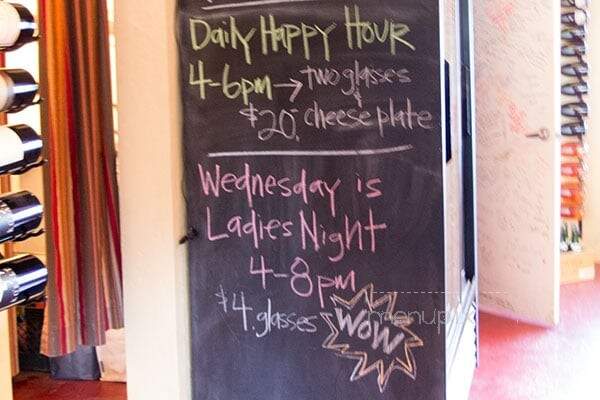 Daily Happy Hour
4-6pm → two glasses
&
$20. cheese plate
Wednesday is
Ladies Night
4-8pm
$4. glasses WOW
menupix